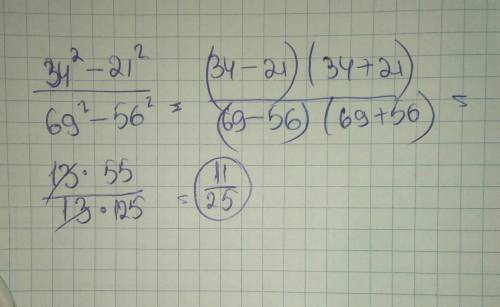 34² − 21² / 69² − 56² = (34 − 21) (34 + 21) / (69 − 56) (69 + 56) =
13 · 55 / 13 · 125 = 11 / 25